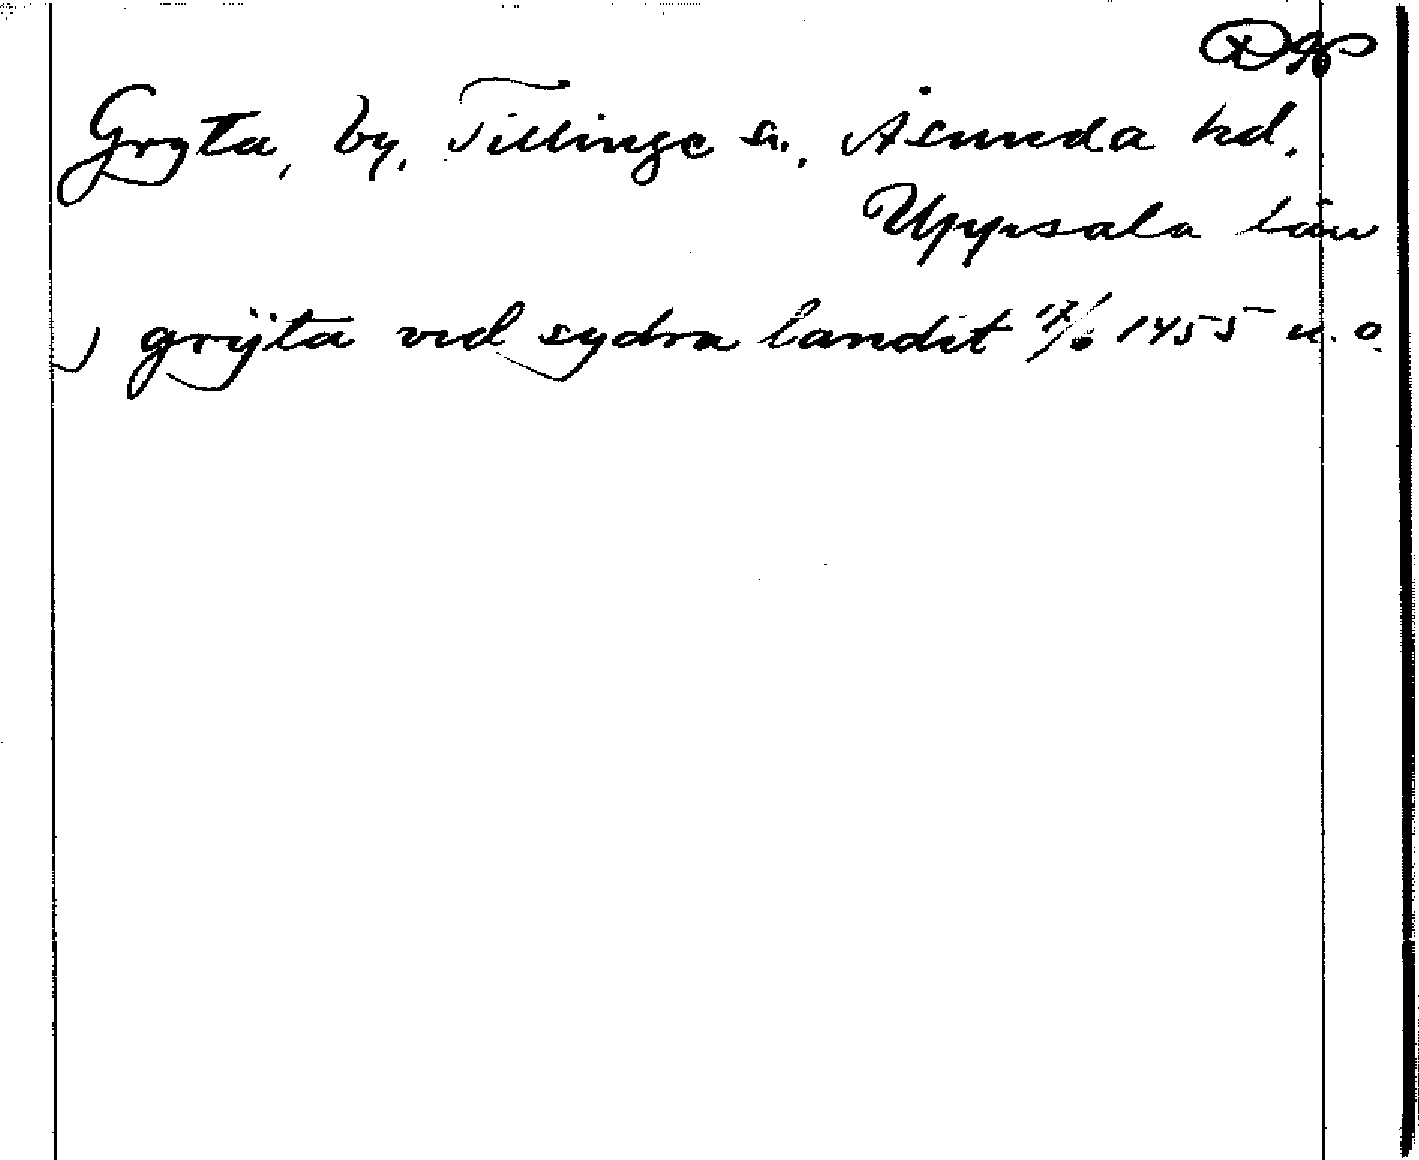 Gryta, by, Tillinge sn., Åsunda hd.
Uppsala län
j grÿta vid sydra landit 1455 u. o.